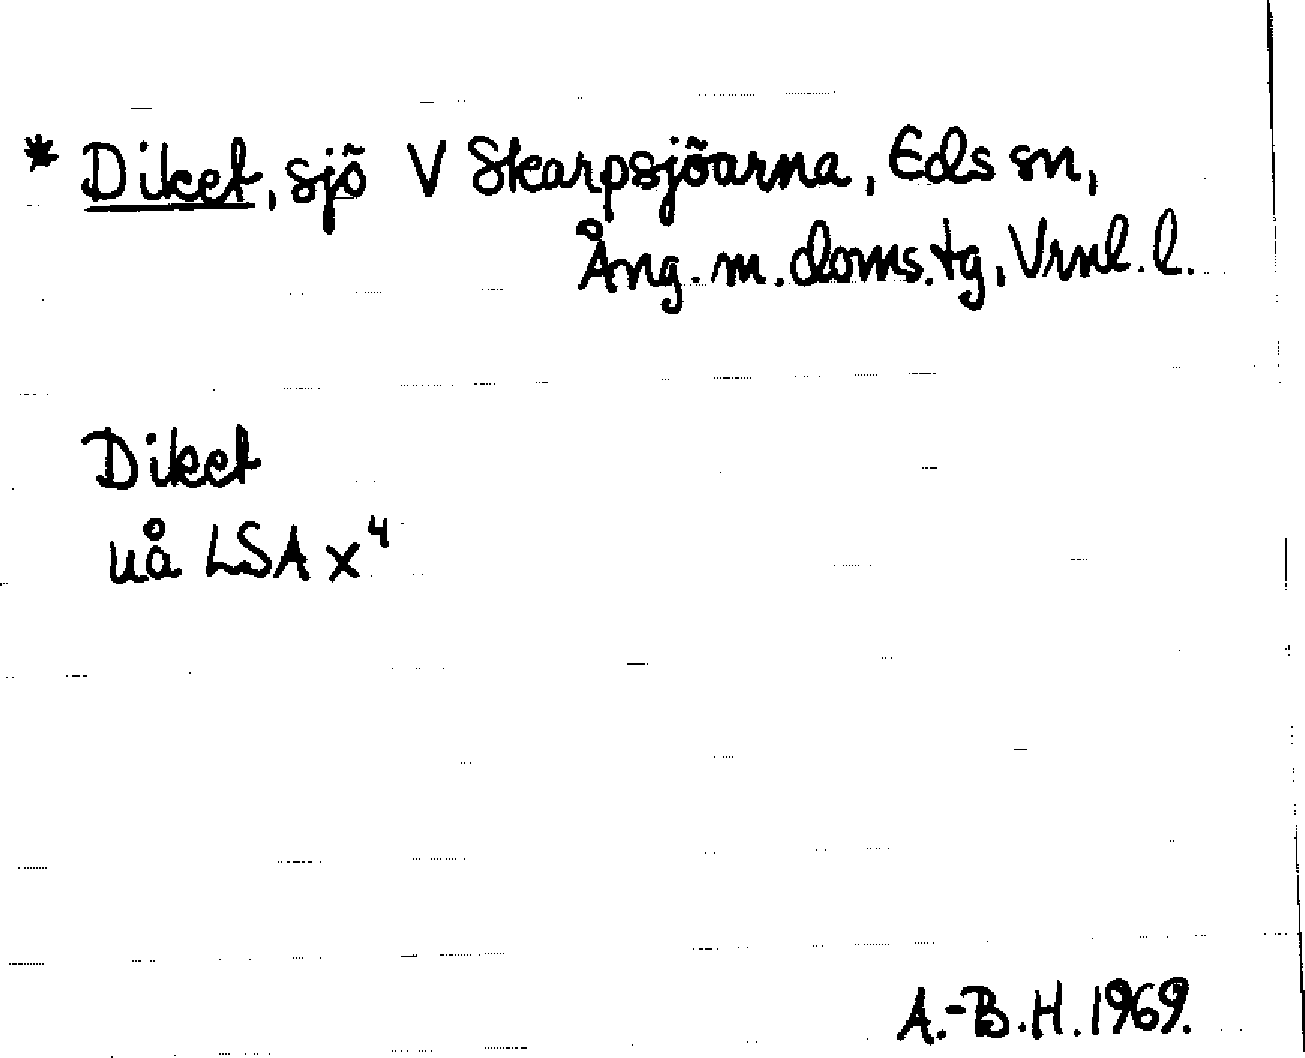 * Diket, sjö V Skarpsjöarna, Eds sn,
Ång. m. doms. tg, Vrml. l.
Diket
uå LSA x⁴
A.-B.H. 1969.